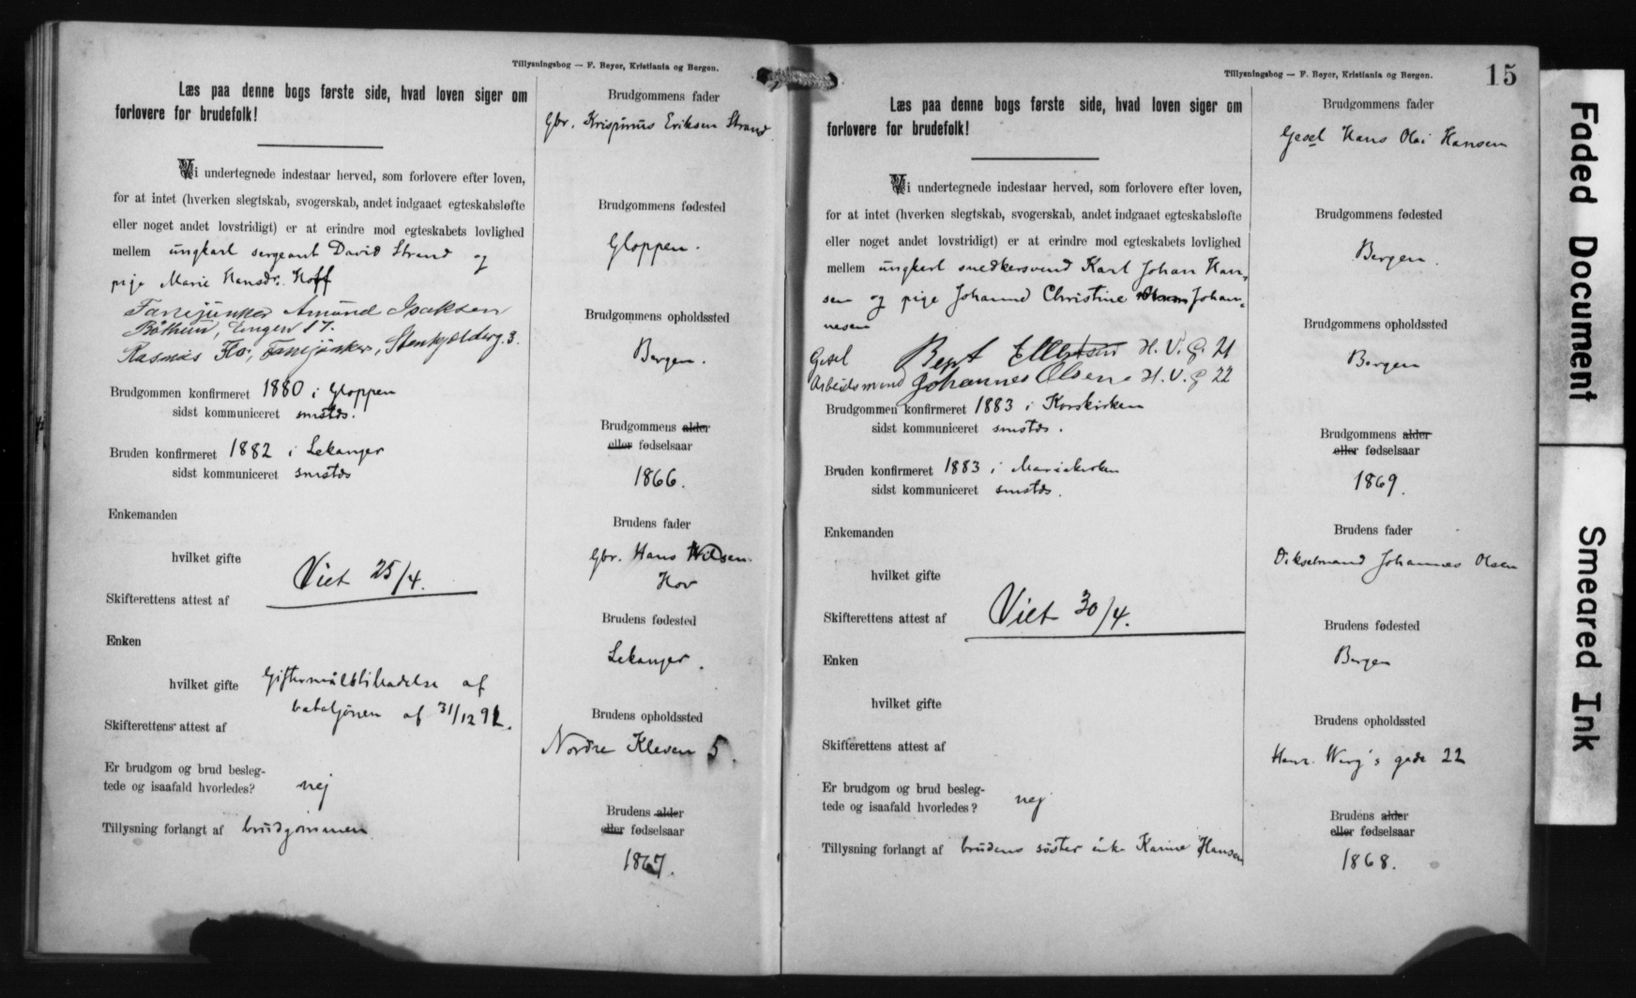 Tillysningsbog — F. Beyer, Kristiania og Bergen.
Læs paa denne bogs første side, hvad loven siger om
forlovere for brudefolk!
Vi undertegnede indestaar herved, som forlovere efter loven,
for at intet (hverken slegtskab, svogerskab, andet indgaaet egteskabsløfte
eller noget andet lovstridigt) er at erindre mod egteskabets lovlighed
mellem ungkarl sergeant David Strand og
pige Marie Hansdr. Hoff
Fanejunker Amund Isaksen
Engen 17.
Rasmus Flo, Fanejunker, Stenkjelderg. 3.
Brudgommen konfirmeret 1880 i Gloppen
sidst kommuniceret smstds.
Bruden konfirmeret 1882 i Lekanger
sidst kommuniceret smstds
Enkemanden
hvilket gifte
Viet 25/4.
Skifterettens attest af
Enken
hvilket gifte Giftermålstilladelse af
bataljonen af 31/12 92.
Skifterettens attest af
Er brudgom og brud besleg-
tede og isaafald hvorledes? nej
Tillysning forlangt af brudgommen
Brudgommens fader
Gbr. Krispinus Eriksen Strand
Brudgommens fødested
Gloppen.
Brudgommens opholdssted
Bergen.
Brudgommens alder
eller fødselsaar
1866.
Brudens fader
Gbr. Hans Nilsen
Hov
Brudens fødested
Lekanger.
Brudens opholdssted
Nordre Kleven 5.
Brudens alder
eller fødselsaar
1867.
Tillysningsbog — F. Beyer, Kristiania og Bergen.
15
Læs paa denne bogs første side, hvad loven siger om
forlovere for brudefolk!
Vi undertegnede indestaar herved, som forlovere efter loven,
for at intet (hverken slegtskab, svogerskab, andet indgaaet egteskabsløfte
eller noget andet lovstridigt) er at erindre mod egteskabets lovlighed
mellem ungkarl snedkersvend Karl Johan Han-
sen og pige Johanne Christine Johan-
nesen
Gesel Bept Ellertsen H. V. G. 21
Arbeidsmand Johannes Olsen H. V. G 22
Brudgommen konfirmeret 1883 i Korskirken
sidst kommuniceret smstds.
Bruden konfirmeret 1883 i Mariakirken
sidst kommuniceret smstds.
Enkemanden
hvilket gifte
Viet 30/4.
Skifterettens attest af
Enken
hvilket gifte
Skifterettens attest af
Er brudgom og brud besleg-
tede og isaafald hvorledes? nej
Tillysning forlangt af brudens søster enke Karine Hansen
Brudgommens fader
Gesel Hans Olai Hansen
Brudgommens fødested
Bergen.
Brudgommens opholdssted
Bergen
Brudgommens alder
eller fødselsaar
1869.
Brudens fader
Johannes Olsen
Brudens fødested
Bergen
Brudens opholdssted
Henr. Werg's gade 22
Brudens alder
eller fødselsaar
1868.
Faded Document
Smeared Ink